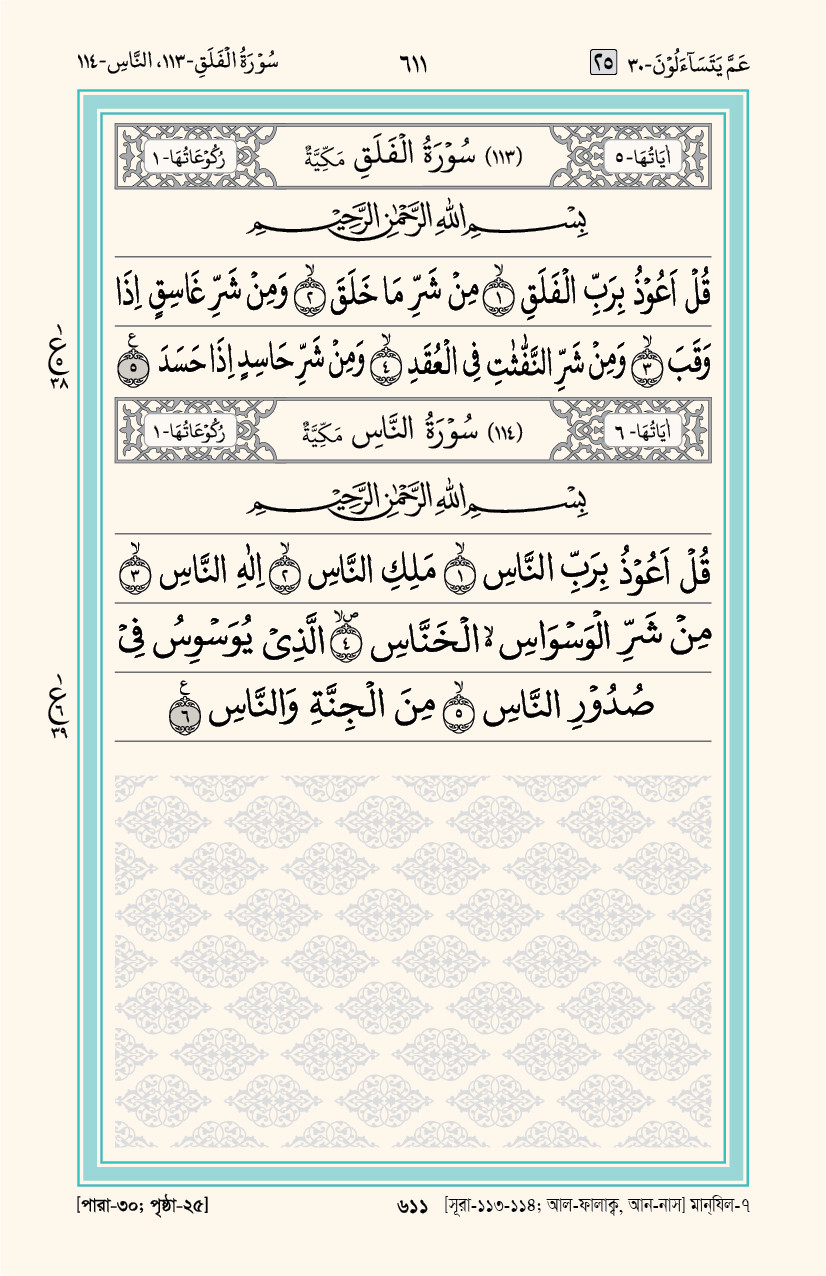 عَمَّ يَتَسَآءَلُوْنَ-٣٠ ٢٥ ٦١١ سُوْرَةُ الْفَلَقِ-١١٣، النَّاسِ-١١٤
اٰيَاتُهَا-٥ (١١٣) سُوْرَةُ الْفَلَقِ مَكِّيَّةٌ رُكُوْعَاتُهَا-١
بِسْمِ اللهِ الرَّحْمٰنِ الرَّحِيْمِ
قُلْ اَعُوْذُ بِرَبِّ الْفَلَقِ ۙ﴿١﴾ مِنْ شَرِّ مَا خَلَقَ ۙ﴿٢﴾ وَمِنْ شَرِّ غَاسِقٍ اِذَا
وَقَبَ ۙ﴿٣﴾ وَمِنْ شَرِّ النَّفّٰثٰتِ فِى الْعُقَدِ ۙ﴿٤﴾ وَمِنْ شَرِّ حَاسِدٍ اِذَا حَسَدَ ﴿٥﴾ ع
ع ٥ ٣٨
اٰيَاتُهَا-٦ (١١٤) سُوْرَةُ النَّاسِ مَكِّيَّةٌ رُكُوْعَاتُهَا-١
بِسْمِ اللهِ الرَّحْمٰنِ الرَّحِيْمِ
قُلْ اَعُوْذُ بِرَبِّ النَّاسِ ۙ﴿١﴾ مَلِكِ النَّاسِ ۙ﴿٢﴾ اِلٰهِ النَّاسِ ۙ﴿٣﴾
مِنْ شَرِّ الْوَسْوَاسِ ۙ الْخَنَّاسِ ۙص﴿٤﴾ الَّذِىْ يُوَسْوِسُ فِىْ
صُدُوْرِ النَّاسِ ۙ﴿٥﴾ مِنَ الْجِنَّةِ وَالنَّاسِ ﴿٦﴾ ع
ع ٦ ٣٩
[পারা-৩০; পৃষ্ঠা-২৫] ৬১১ [সূরা-১১৩-১১৪; আল-ফালাক্ব, আন-নাস] মান্‌যিল-৭